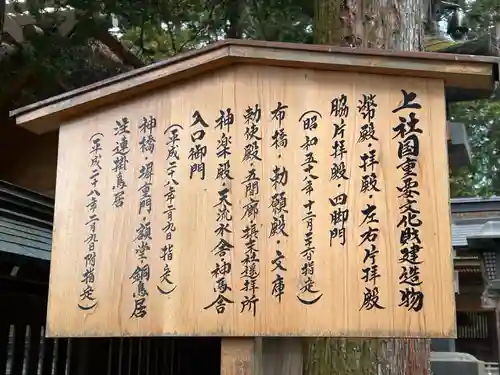 上社国重要文化財建造物
幣殿・拝殿・左右片拝殿
脇片拝殿・四脚門
（昭和五十八年十二月二六日指定）
布橋・勅願殿・文庫
勅使殿・五間廊・摂末社遥拝所
神楽殿・天流水舎・神馬舎
入口御門
（平成二十八年二月九日指定）
神橋・塀重門・額堂・銅鳥居
注連掛鳥居
（平成二十八年二月九日附指定）